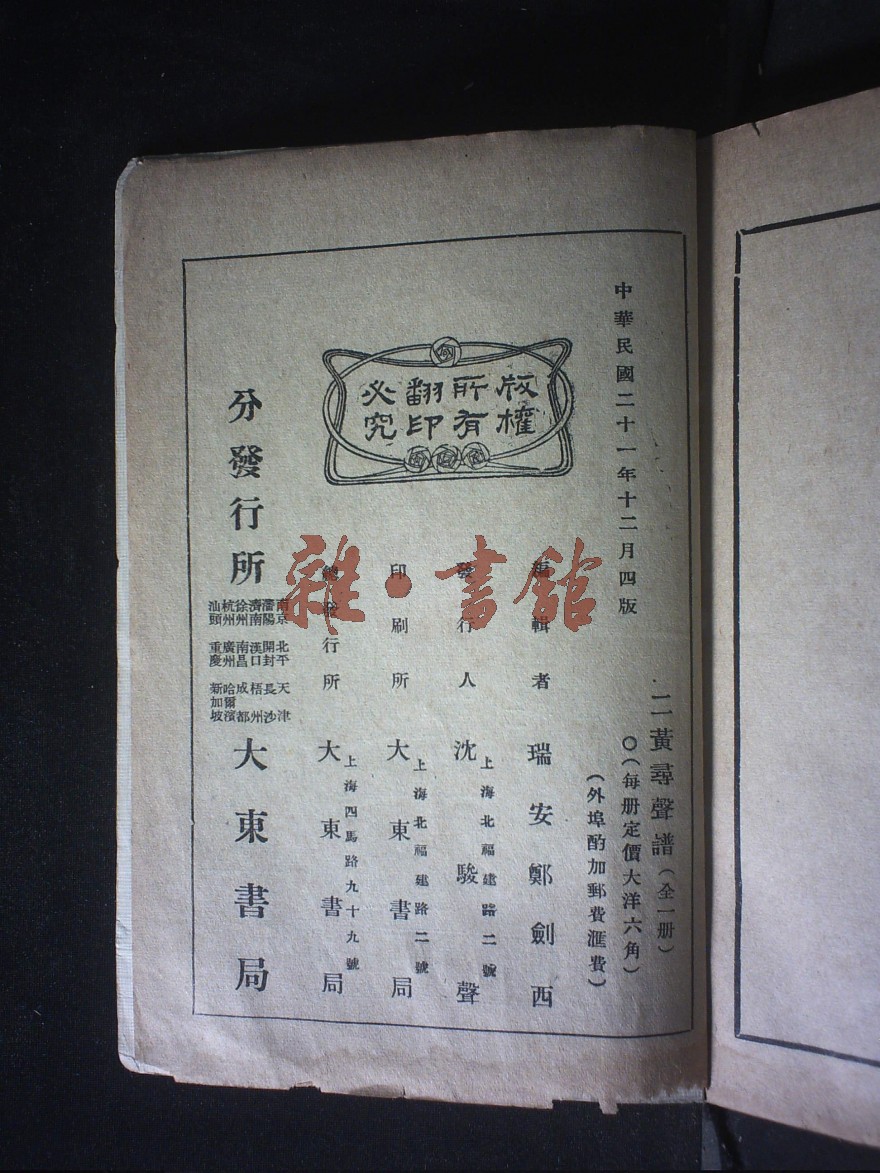 中華民國二十一年十二月四版
二黃尋聲譜（全一册）
○（每册定價大洋六角）
（外埠酌加郵費滙費）
版權
所有
翻印
必究
編輯者 瑞安鄭劍西
發行人 沈駿聲
上海北福建路二號
印刷所 大東書局
上海北福建路二號
總發行所 大東書局
上海四馬路九十九號
分發行所 大東書局
南京 北平 天津
瀋陽 開封 長沙
濟南 漢口 梧州
徐州 南昌 成都
杭州 廣州 哈爾濱
汕頭 重慶 新加坡
雜·書館